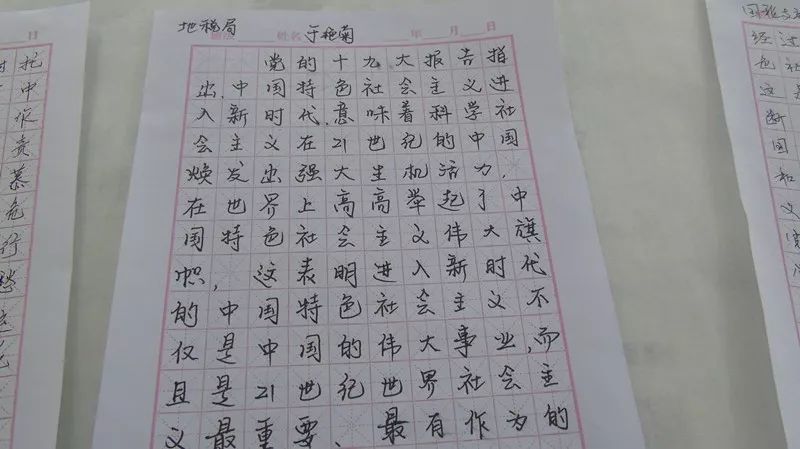 地税局 姓名 于艳菊 年 月 日
党的十九大报告指
出,中国特色社会主义进
入新时代,意味着科学社
会主义在21世纪的中国
焕发出强大生机活力,
在世界上高高举起了中
国特色社会主义伟大旗
帜,这表明进入新时代
的中国特色社会主义不
仅是中国的伟大事业,而
且是21世纪世界社会主
义最重要、最有作为的
日
托
中
责
慕
危
行
经过
色社
这
断
国
和
文